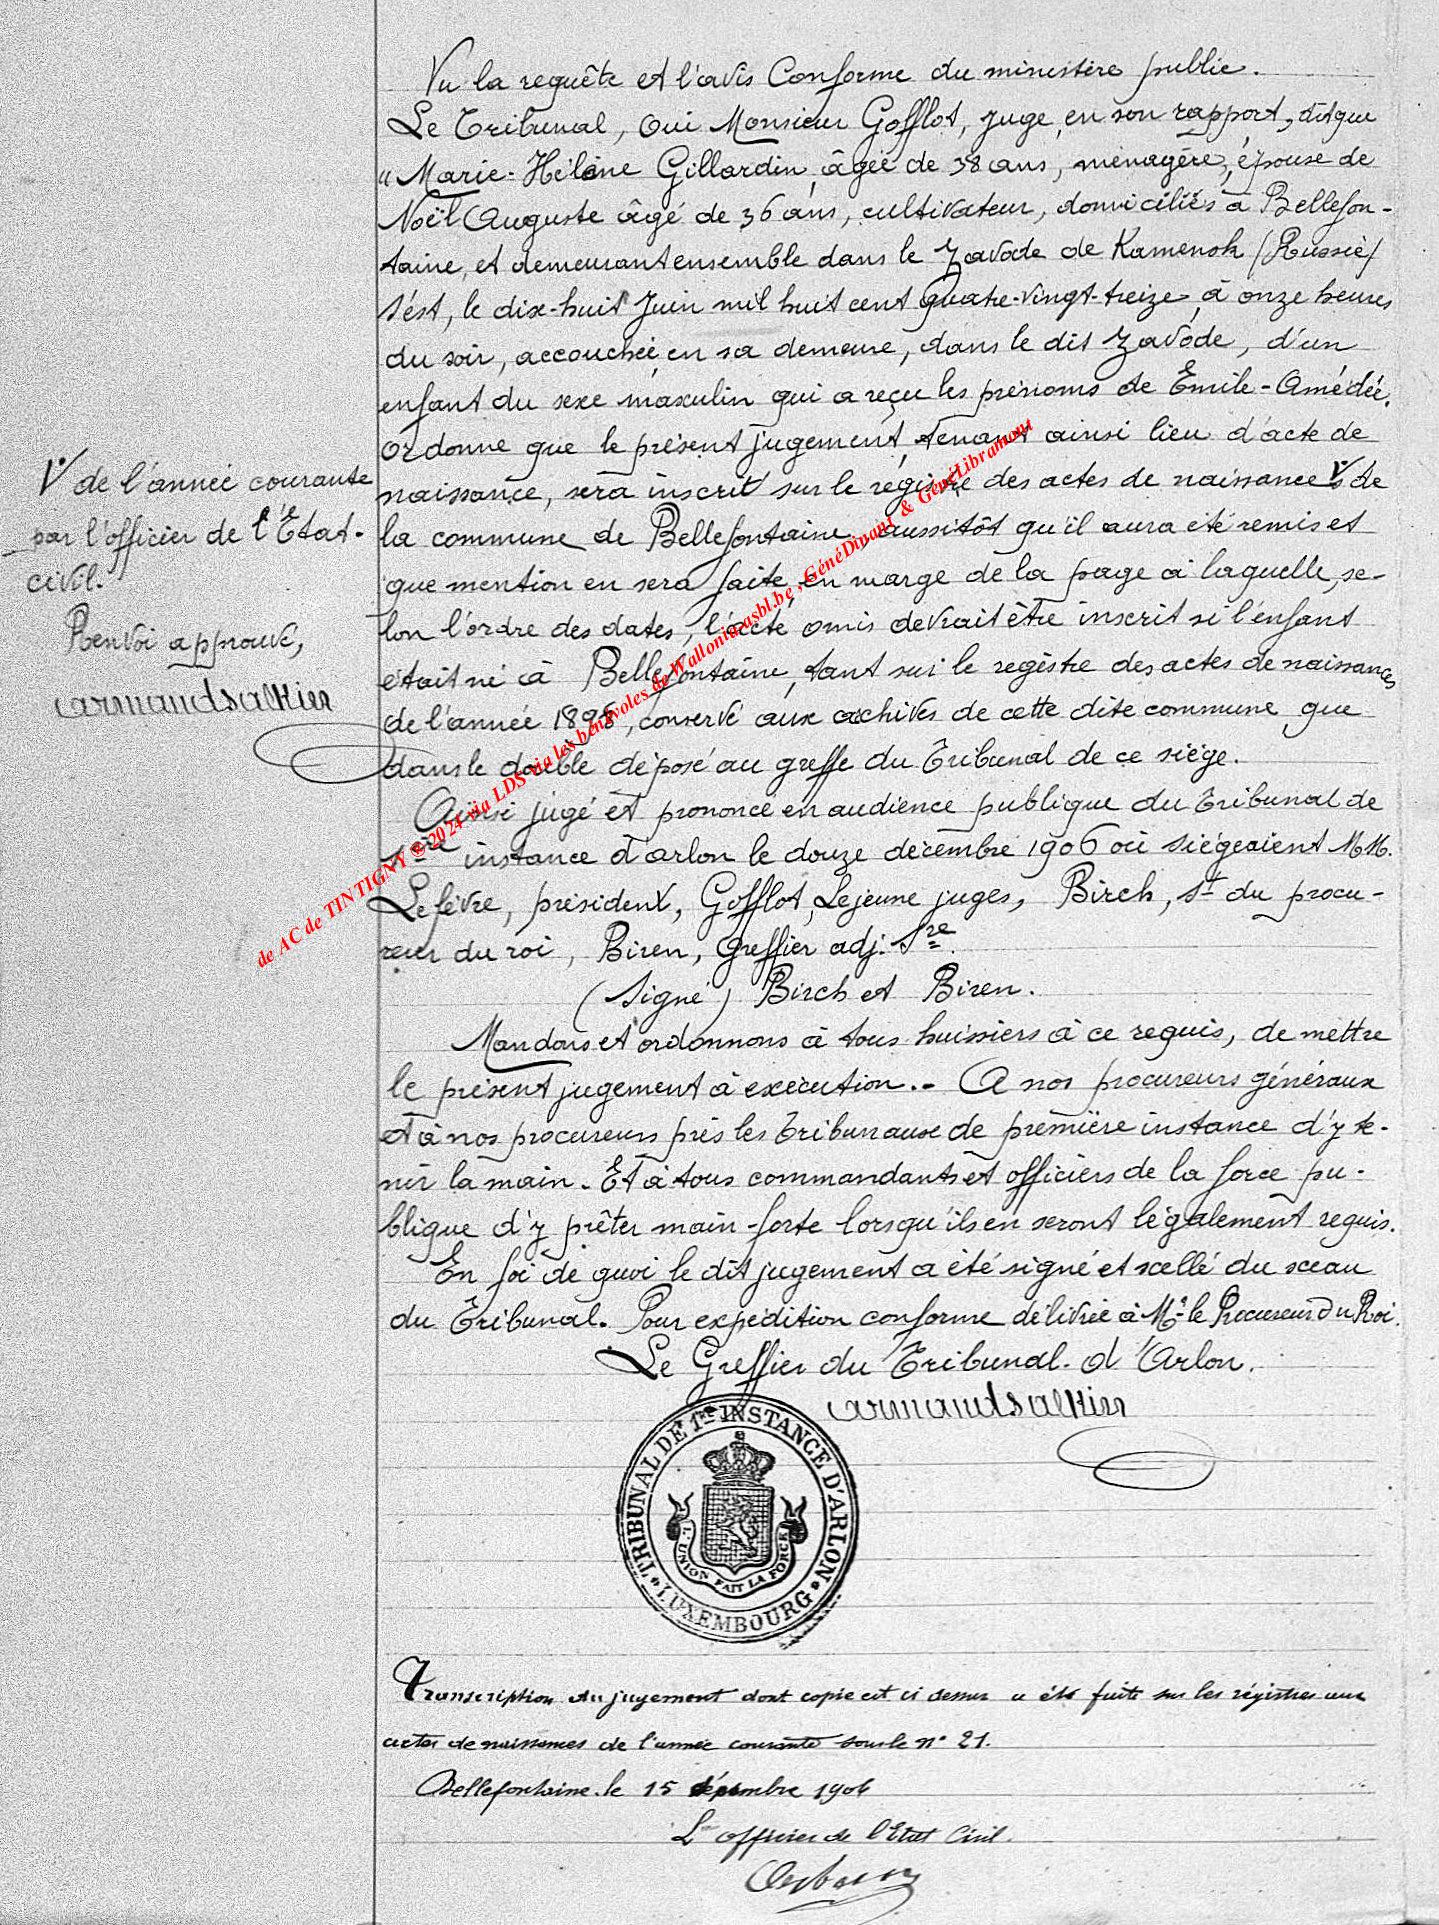 Vu la requête et l'avis Conforme du ministère public.
Le Tribunal, Oui Monsieur Gofflot, juge, en son rapport, dit que
"Marie-Hélène Gillardin, âgée de 38 ans, ménagère, épouse de
Noël Auguste âgé de 36 ans, cultivateur, domiciliés à Bellefon-
taine, et demeurant ensemble dans le Zavode de Kamensk (Russie)
s'est, le dix-huit Juin mil huit cent Quatre-vingt-treize, à onze heures
du soir, accouchée, en sa demeure, dans le dit Zavode, d'un
enfant du sexe masculin qui a reçu les prénoms de Emile-Amédée.
Ordonne que le présent jugement, tenant ainsi lieu d'acte de
naissance, sera inscrit sur le registre des actes de naissances V de
la commune de Bellefontaine, aussitôt qu'il aura été remis et
que mention en sera faite, en marge de la page à laquelle, se-
lon l'ordre des dates, l'acte omis devrait être inscrit si l'enfant
était né à Bellefontaine, tant sur le registre des actes de naissances
de l'année, conservé aux achives de cette dite commune, que
dans le double déposé au greffe du Tribunal de ce siège.
Ainsi jugé et prononcé en audience publique du Tribunal de
1ère instance d'arlon le douze décembre 1906 où siégeaient MM.
Lefèvre, président, Gofflot, Lejeune juges, Birch, st du procu-
reur du roi, Biren, Greffier adj. sre.
(Signé) Birch et Biren.
Mandons et ordonnons à tous huissiers à ce requis, de mettre
le présent jugement à exécution.- A nos procureurs généraux
et à nos procureurs près les Tribunaux de première instance d'y te-
nir la main. Et à tous commandants et officiers de la force pu-
blique d'y prêter main-forte lorsqu'ils en seront légalement requis.
En foi de quoi le dit jugement a été signé et scellé du sceau
du Tribunal. Pour expédition conforme délivrée à Mr le Procureur du Roi.
Le Greffier du Tribunal d'Arlon.
armandsalkin
V de l'année courante
par l'officier de l'Etat-
civil.
Renvoi approuvé,
armandsalkin
de AC de TINTIGNY ® 2024 via LDS via les bénévoles de Wallonia-asbl.be, GénéDinant & GénéLibramont
TRIBUNAL DE 1re INSTANCE D'ARLON
* LUXEMBOURG *
L'UNION FAIT LA FORCE
Transcription du jugement dont copie est ci dessus a été faite sur les régistres aux
actes de naissances de l'année courante sous le n° 21.
Bellefontaine. le 15 décembre 1906
L'officier de l'Etat Civil.